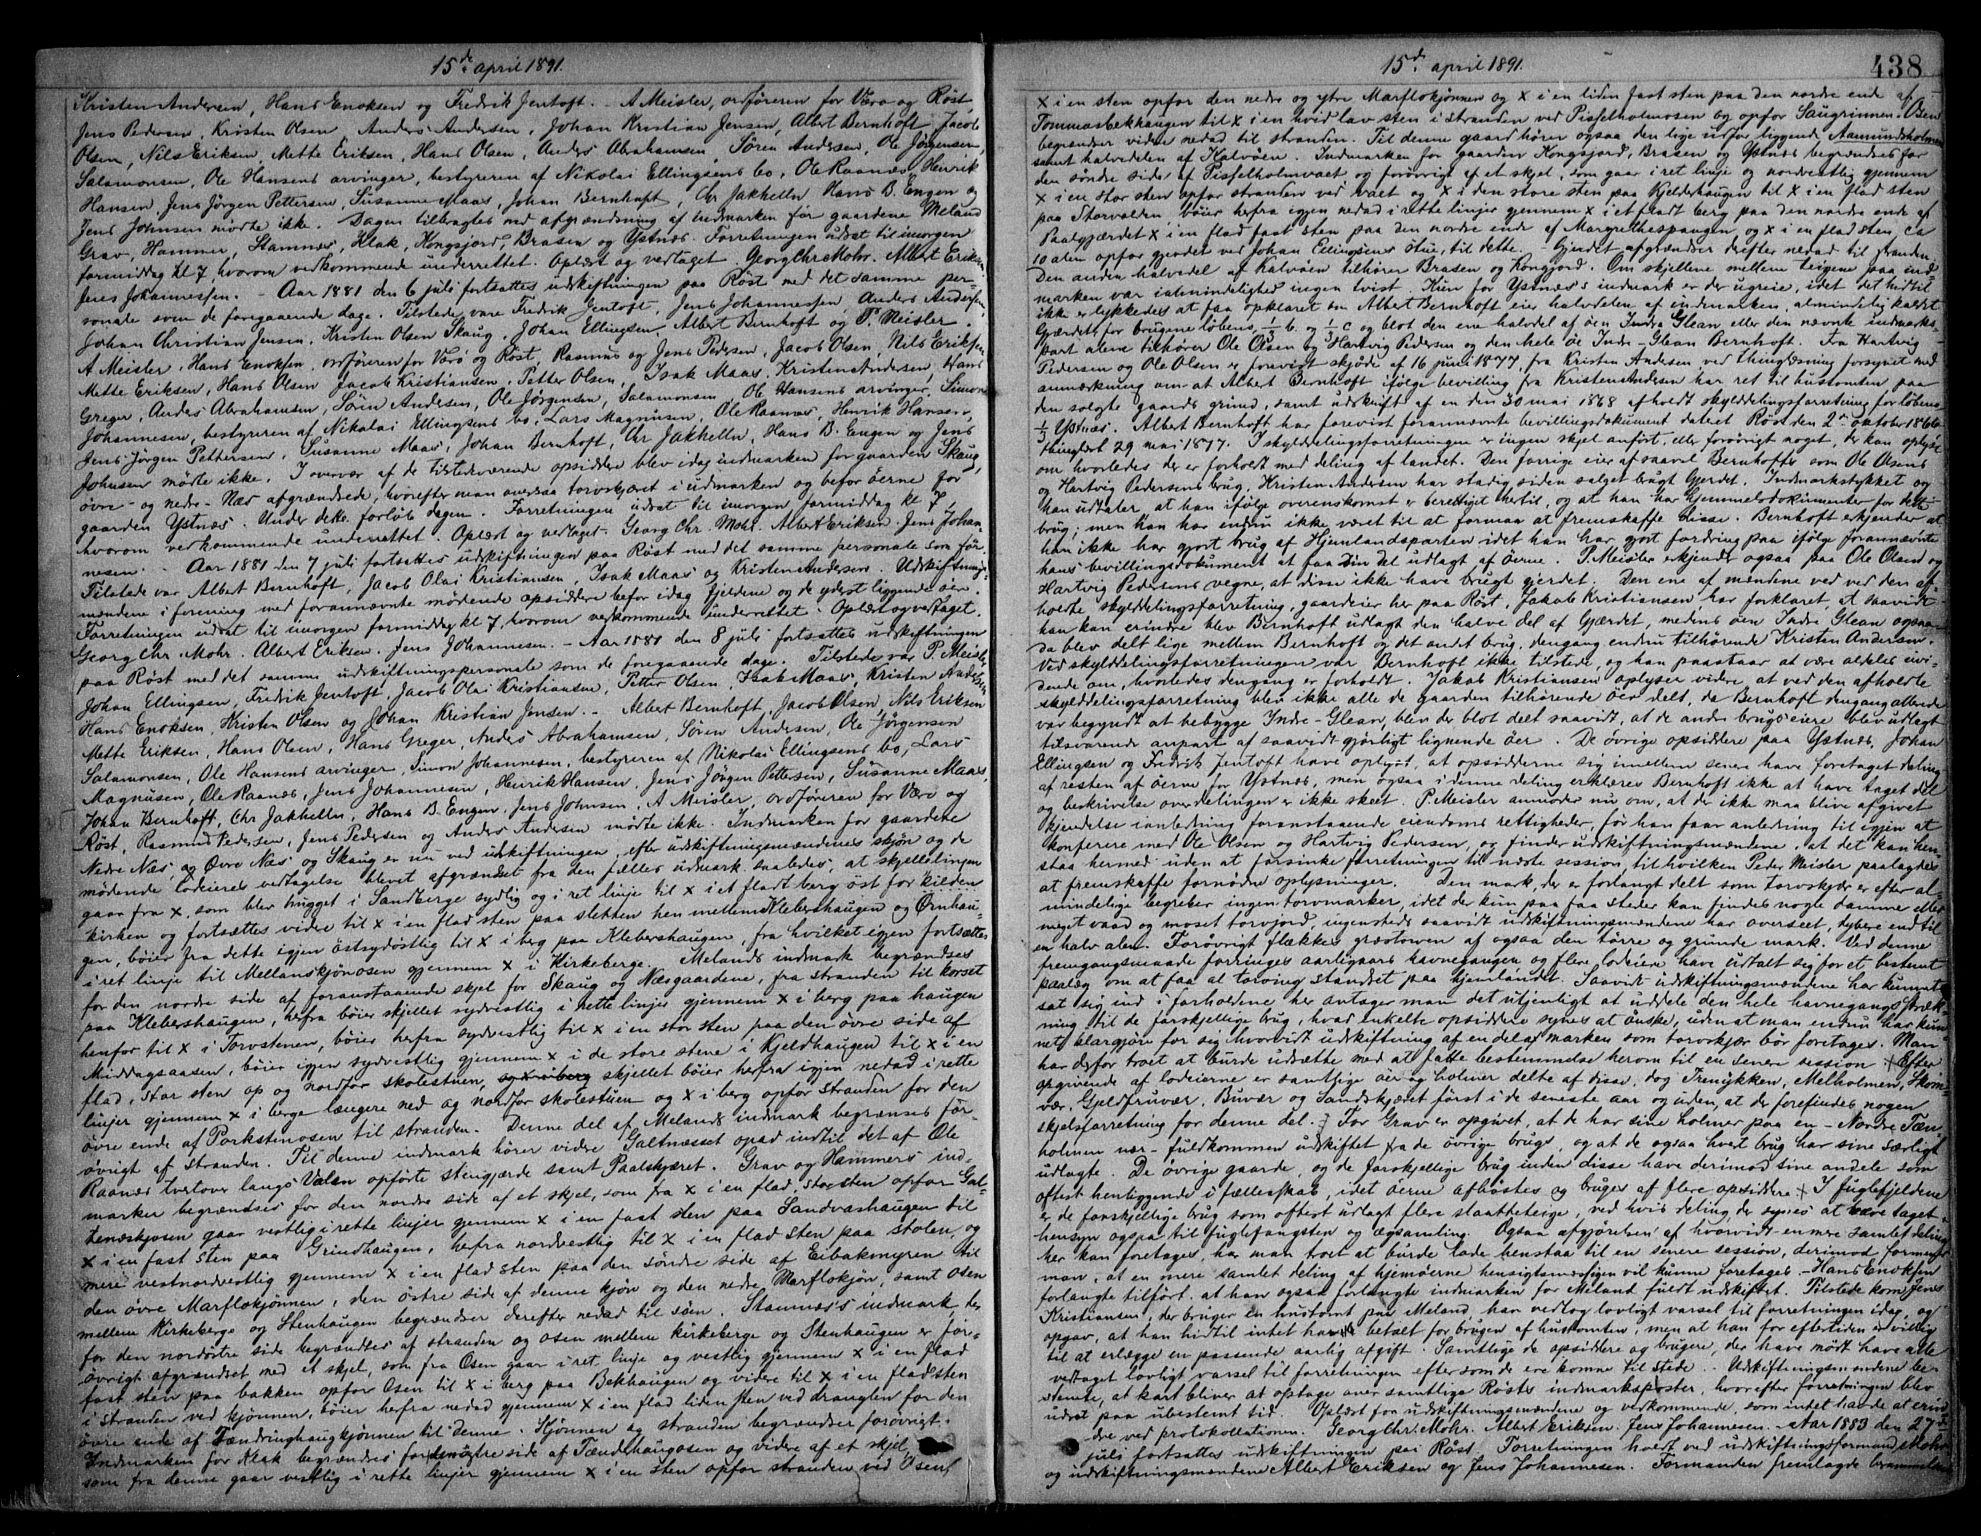 15de april 1891.
Kristen Andersen, Hans Enoksen og Fredrik Jentoft. - A Meisler, ordföreren for Værö og Röst,
Jens Pedersen, Kristen Olsen, Anders Andersen, Johan Kristian Jensen, Albert Bernhoft, Jacob
Olsen, Nils Eriksen, Mette Eriksen, Hans Olsen, Anders Abrahamsen, Sören Andersen, Ole Jørgensen,
Salamonsen, Ole Hansens arvinger, bestyreren af Nikolai Ellingsens bo, Ole Raanæs, Henrik
Hansen, Jens Jörgen Pettersen, Susanne Maas, Johan Bernhoft, Chr Jakhelln, Hans B. Engen og
Jens Johnsen mödte ikke. Dagen tilbragtes med afgrændsning af indmarken for gaardene Meland
Grav, Hammer, Stamnæs, Klak, Kongsjord, Brasen og Ystnæs. Forretningen udsat til imorgen
formiddag kl 7 hvorom vedkommende underrettet. Oplæst og vedtaget. Georg Chr Mohr. Albert Eriksen.
Jens Johannessen. - Aar 1881 den 6 juli fortsattes udskiftningen paa Röst med det samme per-
sonale som de foregaaende dage. Tilstede vare Fredrik Jentoft, Jens Johannessen, Anders Andersen,
Johan Christian Jensen, Kristen Olsen Skaug, Johan Ellingsen, Albert Bernhoft og P. Meisler.
A Meisler, Hans Enoksen, ordföreren for Værö og Röst, Rasmus og Jens Pedersen, Jacob Olsen, Nils Eriksen
Mette Eriksen, Hans Olsen, Jacob Kristiansen, Petter Olsen, Isak Maas, Kristen Andersen, Hans
Greger, Anders Abrahamsen, Sören Andersen, Ole Jörgensen, Salamonsen, Ole Hansens arvinger, Simon
Johannesen, bestyreren af Nikolai Ellingsens bo, Lars Magnusen, Ole Raanæs, Henrik Hansen,
Jens Jörgen Pettersen, Susanne Maas, Johan Bernhoft, Chr Jakhelln, Hans B. Engen og Jens
Johnsen mödte ikke. I overvær af de tilstedeværende opsiddere blev idag indmarken for gaarden Skaug,
övre- og nedre- Næs afgrændsede, hvorefter man oversaa torvskjæret i udmarken og befor öerne for
gaarden Ystnæs. Under dette forlöb dagen. Forretningen udsat til imorgen formiddag kl 7
hvorom vedkommende underrettet. Oplæst og vedtaget. Georg Chr. Mohr. Albert Eriksen. Jens Johan-
nesen. - Aar 1881 den 7 juli fortsattes udskiftningen paa Röst med det samme personale som för.
Tilstede var Albert Bernhoft, Jacob Olai Kristiansen, Isak Maas og Kristen Andersen. Udskiftnings-
mændene i forening med forannævnte mödende opsiddere befor idag fjeldene og de yderst liggende öer.
Forretningen udsat til imorgen formiddag kl 7, hvorom vedkommende underrettet. Oplæst og vedtaget.
Georg Chr. Mohr. Albert Eriksen. Jens Johannesen. - Aar 1881 den 8 juli fortsattes udskiftningen
paa Röst med det samme udskiftningspersonale som de foregaaende dage. Tilstede var P. Meisler
Johan Ellingsen, Fredrik Jentoft, Jacob Olai Kristiansen, Petter Olsen, Isak Maas, Kristen Andersen
Hans Enoksen, Kristen Olsen og Johan Kristian Jensen. - Albert Bernhoft, Jacob Olsen, Nils Eriksen
Mette Eriksen, Hans Olsen, Hans Greger, Anders Abrahamsen, Sören Andersen, Ole Jörgensen
Salamonsen, Ole Hansens arvinger, Simon Johannesen, bestyreren af Nikolai Ellingsens bo, Lars
Magnusen, Ole Raanæs, Jens Johannesen, Henrik Hansen, Jens Jörgen Pettersen, Susanne Maas,
Johan Bernhoft, Chr Jakhelln, Hans B. Engen, Jens Johnsen, A Meisler, ordföreren for Værö og
Röst, Rasmus Pedersen, Jens Pedersen og Anders Andersen mödte ikke. Indmarken for gaardene
Nedre Næs, og Övre Næs og Skaug er nu ved udskiftningen, efter udskiftningsmændenes skjön og de
mödende lodeieres vedtagelse blevet afgrændset fra den fælles udmark saaledes, at skjellslinjen
gaar fra x, som blev hugget i Sandberge sydlig og i ret linje til x i et fladt berg öst for kilden
kirken og fortsættes videre til x i en flad sten paa sletten hen mellem Klebershaugen og Örnhau-
gen, böier fra dette igjen östsydöstlig til x i berg paa Klebershaugen, fra hvilket igjen fortsættes
i ret linje til Mellanskjönosen gjennem x i Kirkeberge. Melands indmark begrændses
for den nordre side af foranstaaende skjel for Skaug og Næsgaardene, fra stranden til korset
paa Klebershaugen, herfra böier skjellet sydvestlig i rette linjer gjennem x i berg paa haugen
henfor til x i Torvstenen, böier herfra sydvestlig til x i en stor sten paa den övre side af
Middagsaasen, böier igjen sydvestlig gjennem x i de store stene i Kjeldhaugen til x i en
flad, stor sten op og nordfor skolestuen, skjellet böier herfra igjen nedad i rette
linjer gjennem x i berge længere ned og nordfor skolestuen og x i berg opfor stranden for den
övre ende af Porkstenosen til stranden. Denne del af Melands indmark begrænses för-
övrigt af stranden. Til denne indmark hörer videre Galtnæsset opad indtil det af Ole
Raanæs tvertover langs Valen opförte stengjærde samt Paalskjæret. Grav og Hammers ind-
marker begrændses for den nordre side af et skjel, som fra x i en flad stor sten opfor Gal-
tenæskjosen gaar vestlig i rette linjer gjennem x i en fast sten paa Sandvashaugen til
x i en fast sten paa Grindhaugen, herfra nordvestlig til x i en flad sten paa stolen, og
mere vestnordvestlig gjennem x i en flad sten paa den söndre side af Eibakmyren til
den övre Marflokjönnen, den östre side af denne kjön og den nedre Marflokjön, samt Osen
mellem Kirkeberge og Stenhaugen begrændser derefter nedad til söen. Stamnæs's indmark, be-
for den nordöstre side begrændses af stranden og osen mellem kirkeberge og Stenhaugen er för-
övrigt afgrændset med et skjel, som fra Osen gaar i ret linje og vestlig gjennem x i en flad
fast sten paa bakken opfor Osen til x i berg paa Bekhaugen og videre til x i en flad sten
i stranden ved kjönnen, böier herfra nedad gjennem x i en flad liden sten ved dranglen for den
övre ende af Tændringhaugkjönnen til denne. Kjönnen og stranden begrændser forövrigt.
Indmarken for Klak begrændses for den östre side af Tændelhaugosen og videre af et skjel,
som fra denne gaar vestlig i rette linjer gjennem x i en sten opfor stranden ved Osen,
15de april 1891.
438
x i en sten opfor den nedre og ytre Marflokjönnen og x i en liden fast sten paa den nordre ende af
Tommasbekhaugen til x i en hvid lav sten i stranden ved Pisselholmosen og opfor Saugrinnen. Osen
begrændser videre nedad til stranden. Til denne gaard hörer ogsaa den lige udfor liggende Aamundsholmen
samt halvdelen af Kalvöen. Indmarken for gaarden Kongsjord, Brasen og Ystnæs begrændses for
den söndre side af Pisselholmsvaet og forövrigt af et skjel, som gaar i ret linje og nordvestlig gjennem
x i en stor sten opfor stranden ved vaet og x i den store sten paa Kjelderhaugen til x i en flad sten
paa Storvolden, böier herfra igjen nedad i rette linjer gjennem x i et fladt berg paa den nordre ende af
Paalgjærdet x i en flad fast sten paa den nordre ende af Margrethespaugen, og x i en flad sten, ca
10 alen opfor gjerdet ved Johan Ellingsens Hus, til dette. - Gjerdet afgrændser derfter nedad til stranden.
Den anden halvedel af Kalvöen tilhörer Brasen og Kongjord. Om skjellene mellem teigene paa ind-
marken var ialmindelighed ingen tvist. Kun for Ystnæs's indmark er der ugreie, idet det hidtil
ikke er lykkedes at faa opklaret om Albert Bernhoft eier halvdelen af indmarken, almindelig kaldet
Gjærdet, for brugene löbens, 1/3 b. og 1/3 c og blot den ene halvdel af öen Indre Glean eller den nævnte indmarks-
part alene tilhörer Ole Olsen og Hartvig Pedersen og den hele de Indre-Glean Bernhoft. Fra Hartvig
Pedersen og Ole Olsen er forevist skjöde af 16 juni 1877, fra Kristen Andersen ved thinglæsning forsynet med
anmærkning om at Albert Bernhoft ifölge bevilling fra Kristen Andersen har ret til hustomten paa
den solgte gaards grund, samt udskrift af en den 30 mai 1868 afholdt skylddelingsforretning for löbens-
1/3 Ystnæs. Albert Bernhoft har forevist forannævnte bevillingsdokument dateret Röst den 2den oktober 1866
thinglæst 29 mai 1877. I skylddelingsforretningen er ingen skjel anfört, eller forövrigt noget, der kan oplyse
om hvorledes der er forholdt med deling af landet. Den forrige eier af saavel Bernhofts som Ole Olsens
og Hartvig Pedersens brug, Kristen Andersen har stadig siden salget brugt Gjerdet. Indmarkstykket og
han udtaler, at han ifölge overenskomst er berettiget hertil, og at han har hjemmelsdokumenter for dette
brug; men han har endnu ikke været til at formaa at fremskaffe disse. Bernhoft erkjender at
han ikke har gjort brug af Hjemlandsparten idet han har gjort fordring paa ifölge forannævnte
hans bevillingsdokument at faa sin del udlagt af öerne. P. Meisler erkjender ogsaa paa Ole Olsen og
Hartvig Pedersens vegne, at disse ikke have brugt gjerdet. Den ene af mændene ved ved den af-
holdte skylddelingsforretning, gaardeier her paa Röst, Jakob Kristiansen, har forklaret, at saavidt
han kan erindre blev Bernhoft udlagt den halve del af Gjærdet, medens öen Indre Glean ogsaa
da blev delt lige mellem Bernhoft og det andet brug, dengang endnu tilhörende Kristen Andersen.
Ved skylddelingsforretningen var Bernhoft ikke tilstede, og han paastaar at være aldeles uvi-
dende om, hvorledes dengang er forholdt. Jakob Kristiansen oplyser videre, at ved den afholdte
skylddelingsforretning blev ikke alle de gaarden tilhörende öer delt, da Bernhoft dengang allerede
var begyndt at bebygge Indre-Glean, blev der blot delt saavidt, at de andre brugs eiere blev udlagt
tilsvarende anpart af saavidt gjörligt lignende öer. De övrige opsiddere paa Ystnæs, Johan
Ellingsen og Fredrik Jentoft have oplyst, at opsidderne sig imellem senere have foretaget deling
af resten af öerne for Ystnæs, men ogsaa i denne deling erklærer Bernhoft ikke at have taget del
og beskrivelse over delingen er ikke skeet. P. Meisler anmoder nu om, at der ikke maa blive afgivet
kjendelse i anledning foranstaaende eiendoms rettigheder, för han faar anledning til igjen at
konferere med Ole Olsen og Hartvig Pedersen, og finder udskiftningsmændene, at det kan hen-
staa hermed uden at forsinke forretningen til næste session, til hvilken Peder Meisler paalægges
at fremskaffe fornödne oplysninger. Den mark, der er forlangt delt som torvskjær er efter al-
mindelige begreber ingen torvmarker, idet der kun paa faa steder kan findes nogle damme eller
meget vaad og moset torvjord, ingensteds saavidt udskiftningsmændene har overseet, dybere end til
en halv alen. Forövrigt flækkes græstorven af ogsaa den törre og grunde mark. Ved denne
fremgangsmaade forringes aarligaars havnegangen og flere lodeiere have udtalt sig for et bestemt
paalæg om at faa al torvning standset paa hjemlandet. Saavidt udskiftningsmændene har kunnet
sat sig ind i forholdene her antager man det utjenligt at uddele den hele havnegangsstræk-
ning til de forskjellige brug, hvad enkelte opsiddere synes at önske, uden at man endnu har kun-
net klargjöre for sig hvorvidt udskiftning af en del af marken som torvskjær bör foretages. Man
har derfor troet at burde udsætte med at fatte bestemmelse herom til en senere session + Efter
opgivende af lodeierne er samtlige öer og holmer delte af disse, dog Trenykken, Melholmen, Skom-
vær, Gjeldfruvær, Buvær og Landskjæret först i de seneste aar og uden, at der forefindes nogen
skjelsforretning for denne del. For Grav er opgivet, at de har sine holmer paa en - Nordre Tan-
holmen nær - fuldkommen udskiftet fra de övrige brugs, og at de ogsaa hvert brug har sine særligt
udlagte. De övrige gaarde, og de forskjellige brug inden disse have derimod sine andele som
oftest henliggende i fællesskab, idet öerne afhöstes og bruges af flere opsiddere + I fuglefjeldene
er de forskjellige brug som oftest udlagt flere slaatteteige, ved hvis deling der synes at være taget
hensyn ogsaa til fuglefangsten og ægsamling. Ogsaa afgjörelsen af hvorvidt en mere samlet deling
her kan foretages, har man troet at burde lade henstaa til en senere session, derimod formener
man, at en mere samlet deling af hjemöerne hensigtsmæssigen vil kunne foretages - Hans Enoksen
forlangte tilfört, at han ogsaa forlangte indmarken for Meland fuldt udskiftet. Tilstede kom Jens
Kristiansen, der bruger en hustomt paa Meland, har vedtog lovligt varsel til forretningen idag, og
opgav, at han hidtil intet havde betalt for brugen af hustomten, men at han for eftertiden er villig
til at erlægge en passende aarlig afgift. Samtlige de opsiddere og brugere, der have mödt have alle
vedtaget lovligt varsel til forretningen eftersom de ere komne til stede. - Udskiftningsmændene be-
stemte, at kart bliver at optage over samtlige Rösts indmarksposter, hvorefter forretningen blev
udsat paa ubestemt tid. Oplæst for udskiftningsmændene og vedkommende, som intet havde at erin-
dre ved protokollationen. Georg Chr. Mohr. Albert Eriksen. Jens Johannesen. - Aar 1883 den 27de
juli fortsattes udskiftningen paa Röst. Forretningen holdt ved udskiftningsformand Mohr
og udskiftningsmændene Albert Eriksen og Jens Johannesen. Formanden fremlagde